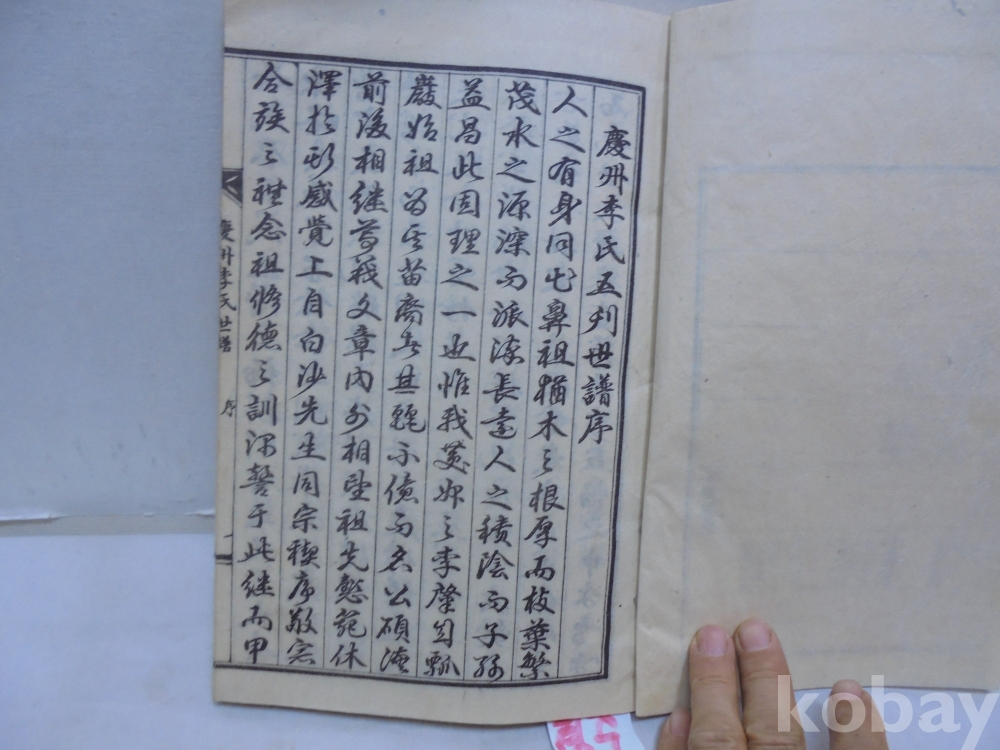 慶州李氏五刋世譜序
人之有身同出鼻祖猶木之根厚而枝葉繁
茂水之源深而派流長遠人之積陰而子孫
益昌此固理之一也惟我慶州之李肇自瓢
巖始祖而苗裔其麗不億而名公碩
前後相繼文章內外相望祖先懿範休
澤於感覺上自白沙先生同宗稧序敬宗
合族之禮念祖修德之訓深于此継而甲
慶州李氏世譜 序 一
kobay